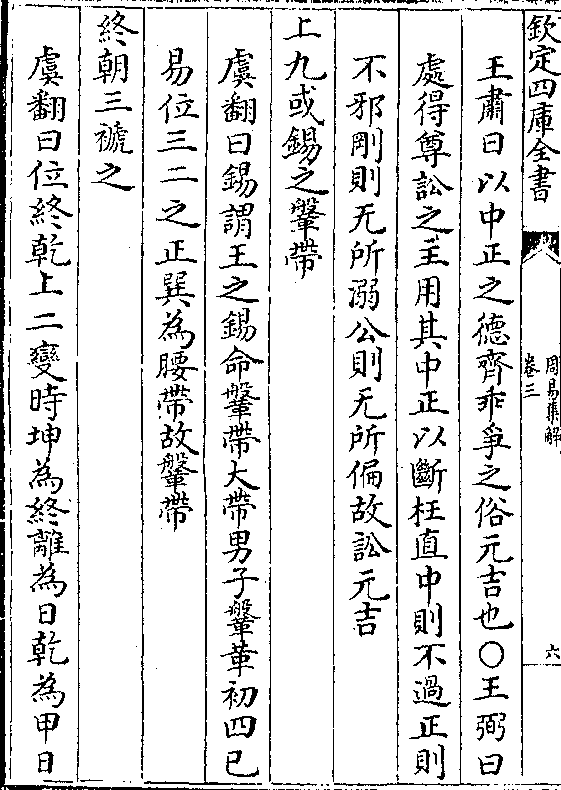 欽定四庫全書
周易集解
卷三
六
王肅曰以中正之德齊乖爭之俗元吉也○王弼曰
處得尊訟之主用其中正以斷枉直中則不過正則
不邪剛則无所溺公則无所偏故訟元吉
上九或錫之鞶帶
虞翻曰錫謂王之錫命鞶帶大帶男子鞶革初四已
易位三二之正巽為腰帶故鞶帶
終朝三褫之
虞翻曰位終乾上二變時坤為終離為日乾為甲日